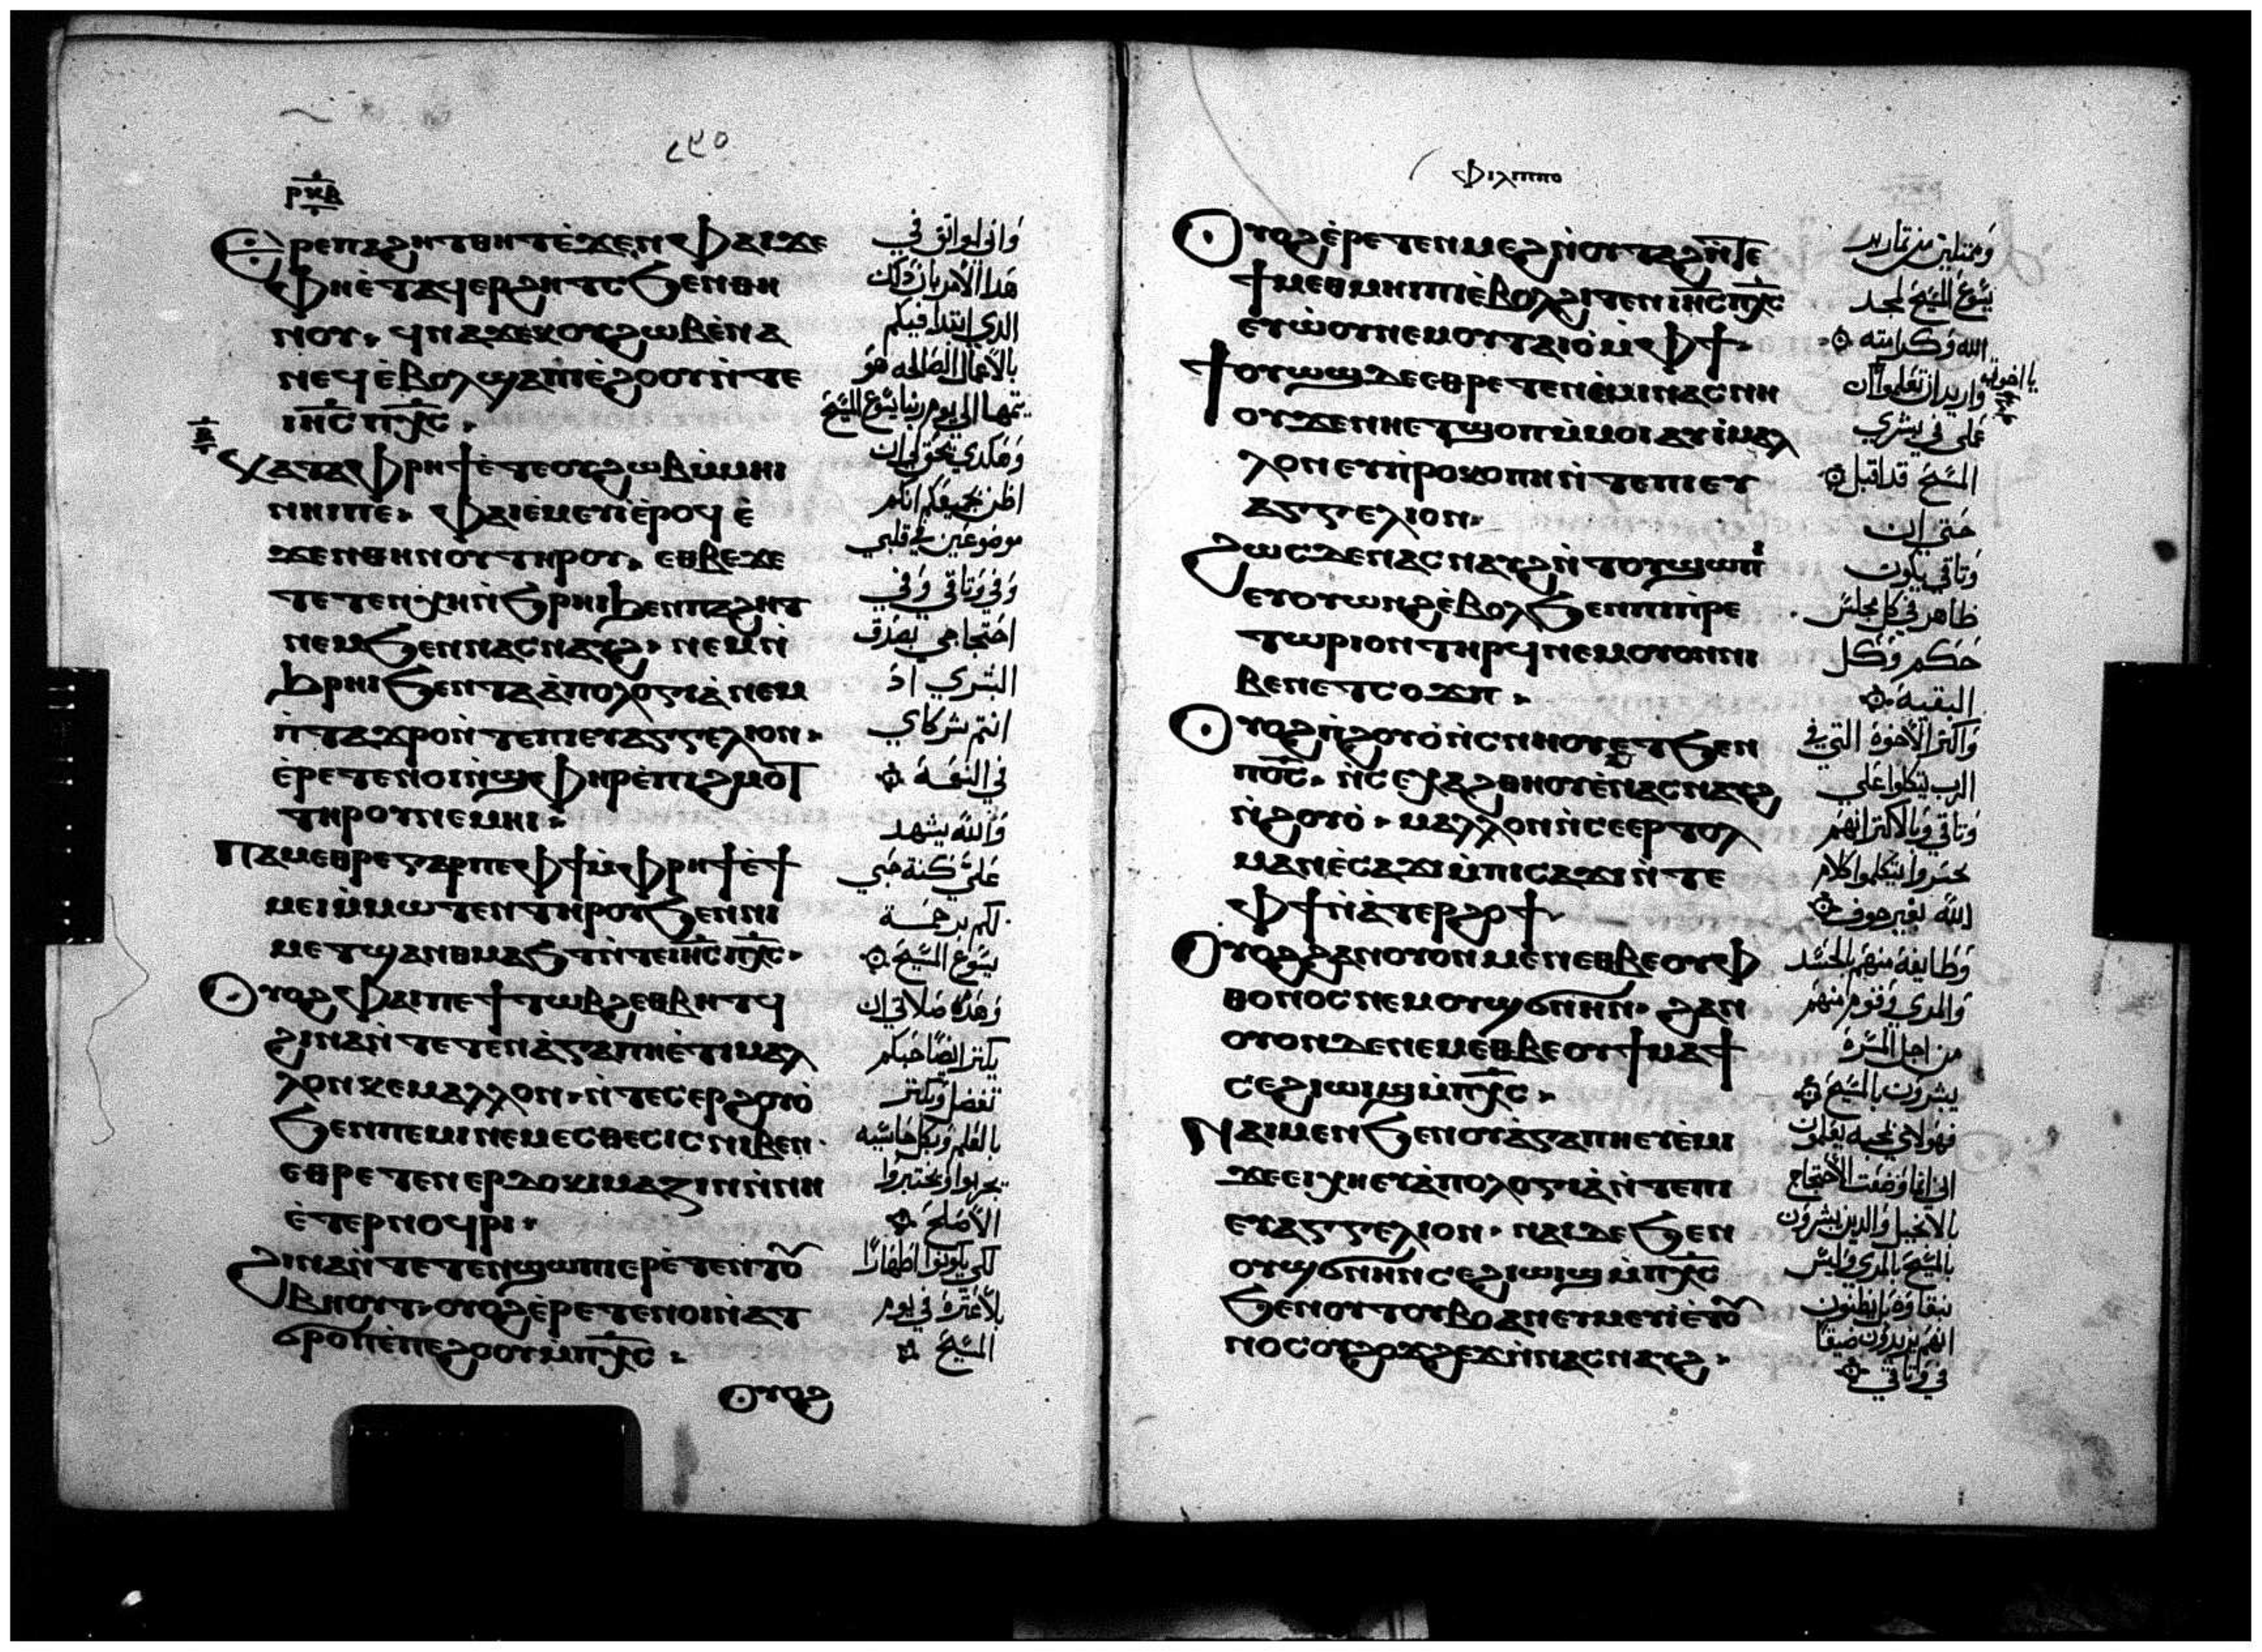 ٢٩٥
ⲣⲕⲃ
Ⲉⲣⲉⲡⲁϩⲏⲧⲑⲏⲧⲉ̀ϫⲉⲛⲫⲁⲓϫⲉ
ⲫⲏⲉ̀ⲧⲁϥⲉⲣϩⲏⲧⲥϧⲉⲛⲑⲏ
ⲛⲟⲩ. ϥⲛⲁϫⲉⲕⲟⲩϩⲱⲃⲉ̀ⲛⲁ
ⲛⲉϥⲉ̀ⲃⲟⲗϣⲁⲡⲓⲉ̀ϩⲟⲟⲩⲛ̀ⲧⲉ
ⲓⲏ̅ⲥ̅ⲡⲭ̅ⲥ̅.
Ⲕⲁⲧⲁⲫⲣⲏϯⲉ̀ⲧⲉⲟⲩϩⲱⲃⲙ̀ⲙⲏⲓ
ⲛⲏⲓⲡⲉ. ⲫⲁⲓⲉ̀ⲙⲉⲩⲓⲉ̀ⲣⲟϥⲉ̀
ϫⲉⲛⲑⲏⲛⲟⲩⲧⲏⲣⲟⲩ. ⲉⲑⲃⲉϫⲉ
ⲧⲉⲧⲉⲛⲭⲏⲛ̀ϧⲣⲏⲓϧⲉⲛⲡⲁϩⲏⲧ
ⲛⲉⲙϧⲉⲛⲛⲁⲥⲛⲁⲩϩ. ⲛⲉⲙⲛ̀
ϧⲣⲏⲓϧⲉⲛⲧⲁⲁ̀ⲡⲟⲗⲟⲅⲓⲁ̀ⲛⲉⲙ
ⲡ̀ⲧⲁϫⲣⲟⲛ̀ⲧⲉⲡⲓⲉⲩⲁⲅⲅⲉⲗⲓⲟⲛ.
ⲉ̀ⲣⲉⲧⲉⲛⲟⲓⲛ̀ϣⲫⲏⲣⲉ̀ⲡⲓϩⲙⲟⲧ
ⲧⲏⲣⲟⲩⲛⲉⲙⲏⲓ.
Ⲡⲁⲙⲉⲑⲣⲉⲅⲁⲣⲡⲉⲫϯⲙ̀ⲫⲣⲏϯⲉ̀ϯ
ⲙⲉⲓⲙ̀ⲙⲱⲧⲉⲛⲧⲏⲣⲟⲩϧⲉⲛⲛⲓ
ⲙⲉⲧϣⲁⲛⲑⲙⲁϧⲧⲛ̀ⲧⲉⲓⲏ̅ⲥ̅ⲡⲭ̅ⲥ̅.
Ⲟⲩⲟϩⲫⲁⲓⲡⲉϯⲧⲱⲃϩⲉⲑⲃⲏⲧϥ
ϩⲓⲛⲁⲛ̀ⲧⲉⲧⲉⲛⲁ̀ⲅⲁⲡⲏⲉ̀ⲧⲓⲙⲁⲗ
ⲗⲟⲛⲕⲉⲙⲁⲗⲗⲟⲛ. ⲛ̀ⲧⲉⲥⲉⲣϩⲟⲩⲟ̀
ϧⲉⲛⲡⲉⲙⲓⲛⲉⲙⲉⲥⲑⲉⲥⲓⲥⲛⲓⲃⲉⲛ.
ⲉⲑⲣⲉⲧⲉⲛⲉⲣⲇⲟⲕⲓⲙⲁⲍⲓⲛⲛ̀ⲛⲏ
ⲉ̀ⲧⲉⲣⲛⲟϥⲣⲓ.
ϩⲓⲛⲁⲛ̀ⲧⲉⲧⲉⲛϣⲱⲡⲓⲉⲣⲉ̀ⲧⲉⲛⲧⲟ̅
ⲃⲏⲟⲩⲧ. ⲟⲩⲟϩⲉ̀ⲣⲉⲧⲉⲛⲟⲓⲛ̀ⲁⲧ
ϭⲣⲟⲡⲉ̀ⲡⲉϩⲟⲟⲩⲙ̀ⲡⲭ̅ⲥ̅.
ⲟⲩⲟϩ
وَانى لواثق في
هَذا الأمر بان ذلك
الذي ابتدا فيكم
بالاعمال الصَالحه هو
يتمها الى يوم ربنا يسَوع المسيَح
وَهَكذي يحق لي ان
اظن بجميعكم انكم
موضوعَين في قلبي
وَفي وَتاقي وَفي
احَتجاجي بصَدق
البشري اذ
انتم شركاي
في النعَمَة
وَالله يشهد
عَليَّ كنة حَبي
لكم برحمَة
يسَوع المسيَح
وَهَذه صَلاتي ان
يكتر ايضَا حَبكم
تفضل وَيكتر
بالعَلم وَبكل حاسَيه
الأصَلحَ
لكي يكونوا اطهَارًا
بلا عَترة في يوم
المسيَح
ⲫⲓⲗⲓⲡⲡⲟ
Ⲟⲩⲟϩⲉ̀ⲣⲉⲧⲉⲛⲙⲉϩⲛ̀ⲟⲩⲧⲁϩⲛ̀ⲧⲉ
ϯⲙⲉⲑⲙⲏⲓⲡⲓⲉ̀ⲃⲟⲗϩⲓⲧⲉⲛⲓⲏ̅ⲥ̅ⲡⲭ̅ⲥ̅
ⲉⲩⲱ̀ⲟⲩⲛⲉⲙⲟⲩⲧⲁⲓⲟ̀ⲙ̀ⲫϯ.
Ϯⲟⲩⲱϣⲇⲉⲉⲑⲣⲉⲧⲉⲛⲉ̀ⲙⲓⲛⲁⲥⲛⲏ
ⲟⲩϫⲉⲛⲏⲉⲧϣⲟⲡⲙ̀ⲙⲟⲓⲁⲩⲓ̀ⲙⲁⲗ
ⲗⲟⲛⲉⲩⲡ̀ⲣⲟⲕⲟⲡⲏⲛ̀ⲧⲉⲡⲓⲉⲩ
ⲁⲅⲅⲉⲗⲓⲟⲛ.
ϩⲱⲥⲇⲉⲛⲁⲥⲛⲁⲩϩⲛ̀ⲧⲟⲩϣⲱⲡⲓ
ⲉⲩⲟⲩⲱⲛϩⲉ̀ⲃⲟⲗϧⲉⲛⲡⲓⲡ̀ⲣⲉ
ⲧⲱⲣⲓⲟⲛⲧⲏⲣϥⲛⲉⲙⲟⲩⲟⲛⲛⲓ
ⲃⲉⲛⲉⲧⲥⲟϫⲡ.
Ⲟⲩⲟϩⲛ̀ϩⲟⲩⲟ̀ⲛ̀ⲥⲛⲏⲟⲩⲉⲧϧⲉⲛ
ⲡⲟ̅ⲥ̅. ⲛ̀ⲥⲉⲭⲁϩⲑⲏⲟⲩⲉ̀ⲛⲁⲥⲛⲁⲩϩ
ⲛ̀ϩⲟⲩⲟ̀. ⲙⲁⲗⲗⲟⲛⲛ̀ⲥⲉⲉⲣⲧⲟⲗ
ⲙⲁⲛⲉ̀ⲥⲁϫⲓⲙ̀ⲡⲓⲥⲁϫⲓⲛ̀ⲧⲉ
ⲫϯⲛ̀ⲁ̀ⲧⲉⲣϩⲟϯ.
Ⲟⲩⲟϩϩⲁⲛⲟⲩⲟⲛⲙⲉⲛⲉⲑⲃⲉⲟⲩⲫ
ⲑⲟⲛⲟⲥⲛⲉⲙⲟⲩϣϭⲛⲏⲛ. ϩⲁⲛ
ⲟⲩⲟⲛⲇⲉⲛⲉⲙⲉⲑⲃⲉⲟⲩϯⲙⲁϯ
ⲥⲉϩⲓⲱⲓϣⲙ̀ⲡⲭ̅ⲥ̅.
Ⲛⲁⲓⲙⲉⲛϧⲉⲛⲟⲩⲁ̀ⲅⲁⲡⲏⲉⲩⲉ̀ⲙⲓ
ϫⲉⲉⲓⲭⲏⲉⲩⲁ̀ⲡⲟⲗⲟⲅⲓⲁ̀ⲛ̀ⲧⲉⲡⲓ
ⲉⲩⲁⲅⲅⲉⲗⲓⲟⲛ. ⲛⲁⲓⲇⲉϧⲉⲛ
ⲟⲩϣϭⲛⲏⲛⲥⲉϩⲓⲱⲓϣⲙ̀ⲡⲭ̅ⲥ̅
ϧⲉⲛⲟⲩⲧⲟⲩⲃⲟⲁⲛⲉⲩⲙⲉⲩⲓⲉ̀ⲧⲟ̅
ⲛⲟⲥⲟⲩϩⲟϫϩⲉϫⲛ̀ⲛⲁⲥⲛⲁⲩϩ.
وَممتليَن من تمار بر
يسَوع المسيَح لمجد
الله وَكرامته
وَاريد ان تعَلموا ان
المسيَحَ قد اقبل
حَتى ان
وَتاقي يكون
ظاهر في كل مجلسَ
حَكم وَكل
البقيَة
وَاكتر الأخوة التي في
الرب ليتكلوا عَلي
وَتاقي وَبالاكتر انهَم
يجسَروا ليتكلموا كلام
الله بغَير خوف
وَطايفة منهَم بالحَسَد
وَالمري وَقوم منهَم
من اجل المسَرة
يبشرون بالمسيَحَ
الى انما وضَعَت الأحَتجاج
بالانجيل وَالذين يبشرون
بالمسيَحَ بالمري وَليسَ
بنقاوة بل يظنون
انهَم يزيدون ضيقًا
في وَتاقي